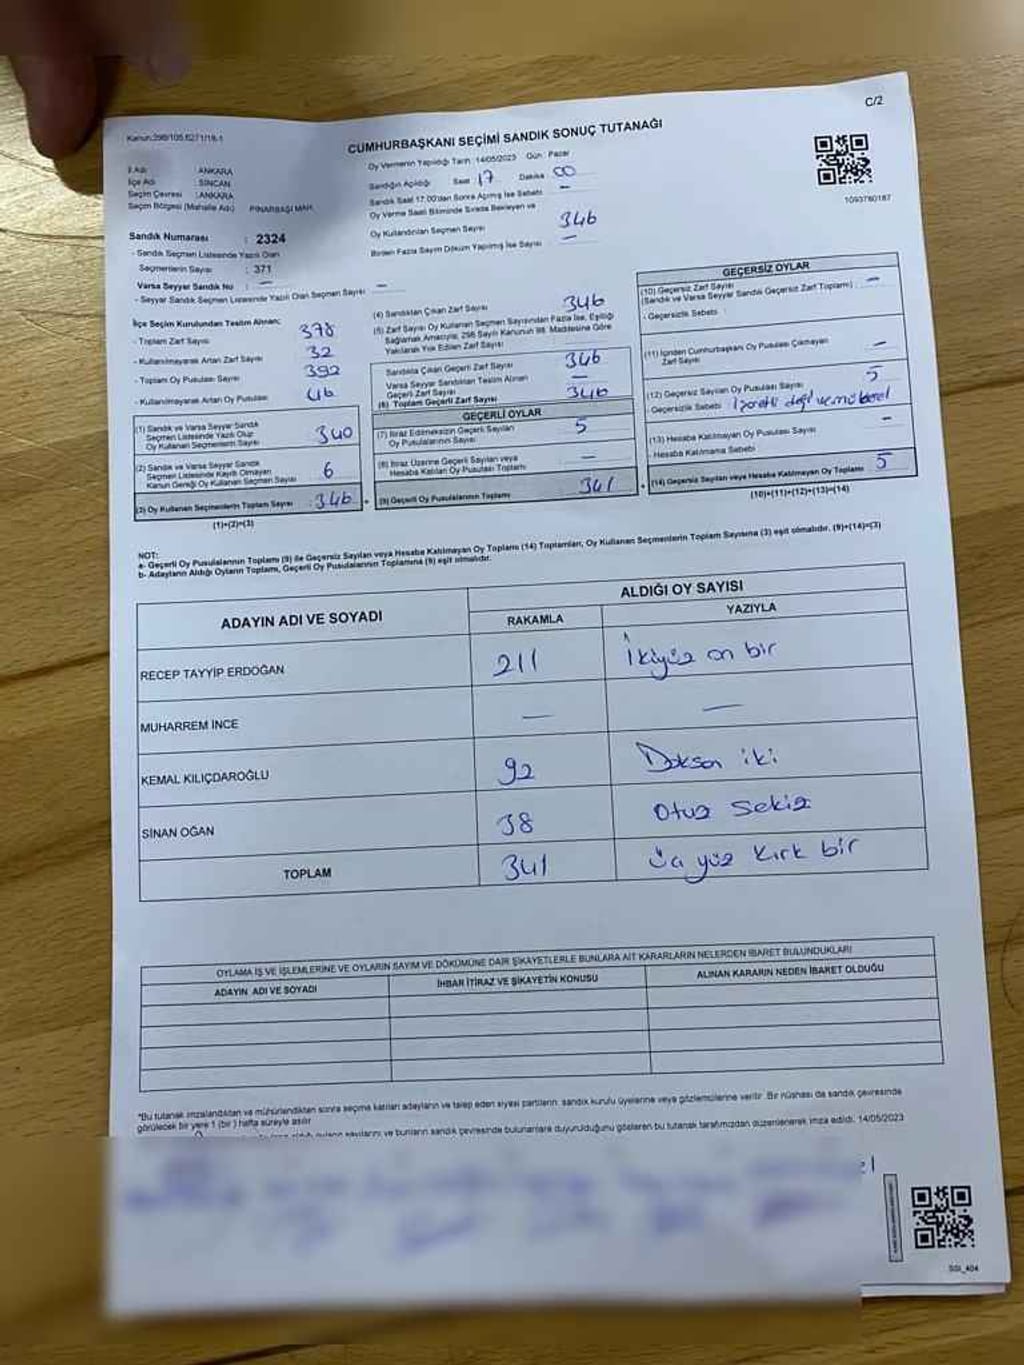 C/2
Kanun:298/105,6271/18-1
CUMHURBAŞKANI SEÇİMİ SANDIK SONUÇ TUTANAĞI
İl Adı : ANKARA
İlçe Adı : SİNCAN
Seçim Çevresi : ANKARA
Seçim Bölgesi (Mahalle Adı) PINARBAŞI MAH.
Oy Vermenin Yapıldığı Tarih : 14/05/2023 Gün : Pazar
Sandığın Açıldığı Saat 17 Dakika 00
Sandık Saat 17:00'dan Sonra Açılmış İse Sebebi —
Oy Verme Saati Bitiminde Sırada Bekleyen ve
Oy Kullandırılan Seçmen Sayısı 346
Birden Fazla Sayım Döküm Yapılmış İse Sayısı —
1093780187
Sandık Numarası : 2324
- Sandık Seçmen Listesinde Yazılı Olan
Seçmenlerin Sayısı : 371
Varsa Seyyar Sandık No : —
- Seyyar Sandık Seçmen Listesinde Yazılı Olan Seçmen Sayısı —
İlçe Seçim Kurulundan Teslim Alınan;
- Toplam Zarf Sayısı 378
- Kullanılmayarak Artan Zarf Sayısı 32
- Toplam Oy Pusulası Sayısı 392
- Kullanılmayarak Artan Oy Pusulası 46
(1) Sandık ve Varsa Seyyar Sandık
Seçmen Listesinde Yazılı Olup
Oy Kullanan Seçmenlerin Sayısı 340
(2) Sandık ve Varsa Seyyar Sandık
Seçmen Listesinde Kayıtlı Olmayan
Kanun Gereği Oy Kullanan Seçmen Sayısı 6
(3) Oy Kullanan Seçmenlerin Toplam Sayısı : 346
(1)+(2)=(3)
(4) Sandıktan Çıkan Zarf Sayısı 346
(5) Zarf Sayısı Oy Kullanan Seçmen Sayısından Fazla İse, Eşitliği
Sağlamak Amacıyla; 298 Sayılı Kanunun 98. Maddesine Göre
Yakılarak Yok Edilen Zarf Sayısı —
Sandıkta Çıkan Geçerli Zarf Sayısı 346
Varsa Seyyar Sandıktan Teslim Alınan
Geçerli Zarf Sayısı —
(6) Toplam Geçerli Zarf Sayısı 346
GEÇERLİ OYLAR
(7) İtiraz Edilmeksizin Geçerli Sayılan
Oy Pusulalarının Sayısı 5
(8) İtiraz Üzerine Geçerli Sayılan veya
Hesaba Katılan Oy Pusulası Toplamı —
(9) Geçerli Oy Pusulalarının Toplamı 341
GEÇERSİZ OYLAR
(10) Geçersiz Zarf Sayısı
(Sandık ve Varsa Seyyar Sandık Geçersiz Zarf Toplamı) —
- Geçersizlik Sebebi :
(11) İçinden Cumhurbaşkanı Oy Pusulası Çıkmayan
Zarf Sayısı —
(12) Geçersiz Sayılan Oy Pusulası Sayısı 5
- Geçersizlik Sebebi
(13) Hesaba Katılmayan Oy Pusulası Sayısı —
- Hesaba Katılmama Sebebi
(14) Geçersiz Sayılan veya Hesaba Katılmayan Oy Toplamı 5
(10)+(11)+(12)+(13)=(14)
NOT:
a- Geçerli Oy Pusulalarının Toplamı (9) ile Geçersiz Sayılan veya Hesaba Katılmayan Oy Toplamı (14) Toplamları, Oy Kullanan Seçmenlerin Toplam Sayısına (3) eşit olmalıdır. (9)+(14)=(3)
b- Adayların Aldığı Oyların Toplamı, Geçerli Oy Pusulalarının Toplamına (9) eşit olmalıdır.
ADAYIN ADI VE SOYADI
ALDIĞI OY SAYISI
RAKAMLA YAZIYLA
RECEP TAYYİP ERDOĞAN 211 İkiyüz on bir
MUHARREM İNCE — —
KEMAL KILIÇDAROĞLU 92 Doksan iki
SİNAN OĞAN 38 Otuz sekiz
TOPLAM 341 Üç yüz kırk bir
OYLAMA İŞ VE İŞLEMLERİNE VE OYLARIN SAYIM VE DÖKÜMÜNE DAİR ŞİKAYETLERLE BUNLARA AİT KARARLARIN NELERDEN İBARET BULUNDUKLARI
ADAYIN ADI VE SOYADI İHBAR İTİRAZ VE ŞİKAYETİN KONUSU ALINAN KARARIN NEDEN İBARET OLDUĞU
*Bu tutanak imzalandıktan ve mühürlendikten sonra seçime katılan adayların ve talep eden siyasi partilerin sandık kurulu üyelerine veya gözlemcilerine verilir. Bir nüshası da sandık çevresinde
görülecek bir yere 1 (bir) hafta süreyle asılır
oyların sayılarını ve bunların sandık çevresinde bulunanlara duyurulduğunu gösteren bu tutanak tarafımızdan düzenlenerek imza edildi. 14/05/2023
SSI_404